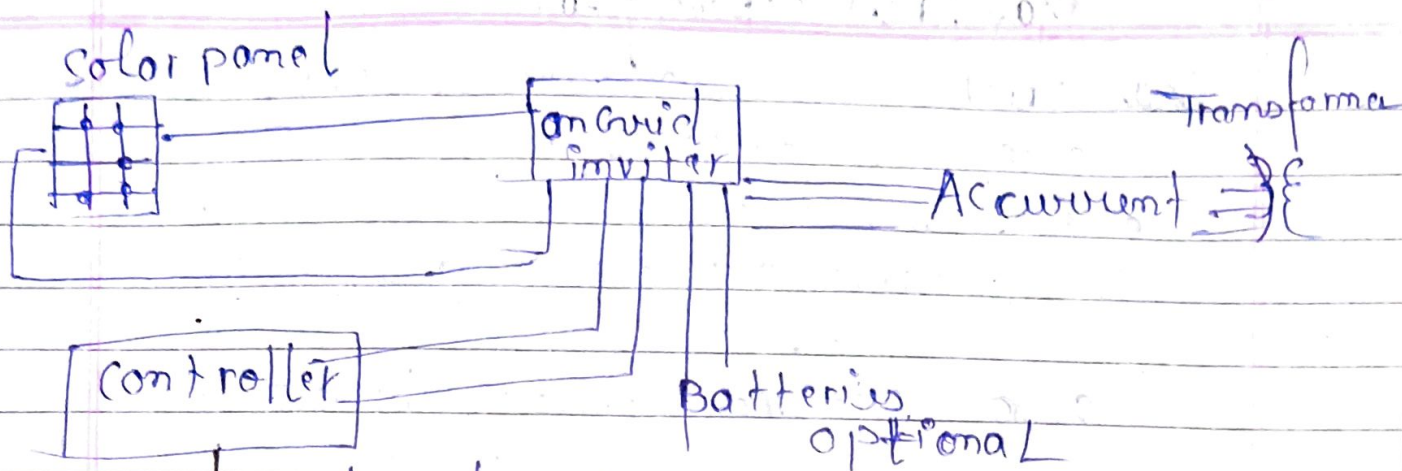 Solar panel
on Gurid
inviter
Transforma
Ac current
Controller
Batteries
optional